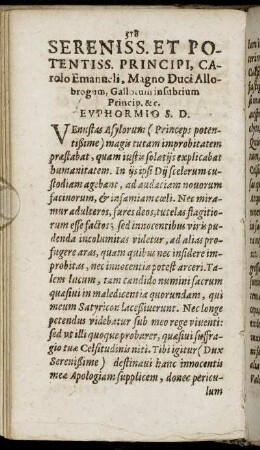 518
SERENISS. ET PO-
TENTISS. PRINCIPI, CA-
rolo Emanueli, Magno Duci Allo-
brogum, Gallorum insubrium
Princip. &c.
EVPHORMIO S. D.
VEnustas Asylorum (Princeps poten-
tißime) magis tutam improbitatem
præstabat, quam iustis solatijs explicabat
humanitatem. In ijs ipsi Dij scelerum cu-
stodiam agebant, ad audaciam nouorum
facinorum, & infamiam cœli. Nec mira-
mur adulteros, fures deos, tutelas flagitio-
rum esse factos, sed innocentibus viris pu-
denda incolumitas videtur, ad alias pro-
fugere aras, quam quibus nec insidere im-
probitas, nec innocentia potest arceri. Ta-
lem lucum, tam candido numini sacrum
quæsiui in maledicentia quorundam, qui
meum Satyricon lacessiuerunt. Nec longe
petendus videbatur sub meo rege viuenti:
sed vt illi quoque probarer, quæsiui suffra-
gio tuæ Celsitudinis niti. Tibi igitur (Dux
Serenißime) destinaui hanc innocentis
meæ Apologiam supplicem, donec pericu-
lum